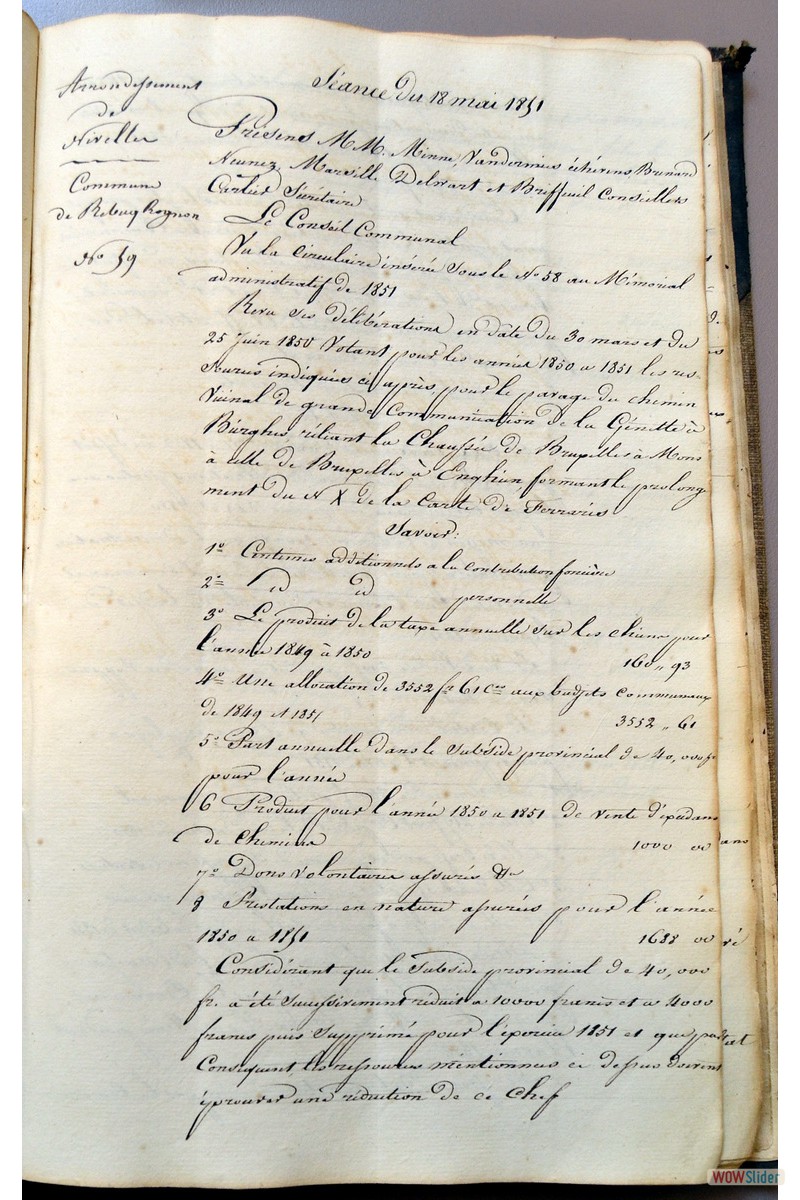 Séance du 18 mai 1851
Arrondissement
de
Nivelles
Commune
de Rebecq Rognon
No 59
Présens M.M. Minne, Vandermies échévins Brunard
Neunez, Marsille, Delwart et Briffeuil Conseillers
Carlier Secrétaire
Le Conseil Communal
Vu la circulaire insérée sous le No 58 au Mémorial
administratif de 1851
Revu ses délibérations en date du 30 mars et du
25 Juin 1850 Votant pour les années 1850 a 1851 les res-
sources indiquées ci après, pour le pavage du chemin
vicinal de grande Communication de la Génette à
Bierghes, réliant la Chaussée de Bruxelles à Mons
à celle de Bruxelles à Enghien formant le prolong
ment du N X de la Carte de Ferraris
Savoir:
1o Centimes additionnels a la contribution foncière
2o id id personnelle
3o Le produit de la taxe annuelle sur les chiens pour
l'année 1849 à 1850 160 " 93
4o Une allocation de 3552 fr 61 ces aux budjets communaux
de 1849 et 1851 3552 " 61
5o Part annuelle dans le subside provincial de 40,000 fr
pour l'année
6 Produit pour l'année 1850 a 1851 de vente d'excédans
de Chemins 1000 00
7o Dons volontaires assurés &a
8 Prestations en nature assurées pour l'année
1850 a 1851 1688 00
Considérant que le subside provincial de 40,000
fr. a été sucessivement réduit a 10000 francs et a 4000
francs puis supprimé pour l'éxercice 1851 et que par
Conséquent les ressources mentionnées ci dessus doivent
éprouver une réduction de ce chef
WOWSlider